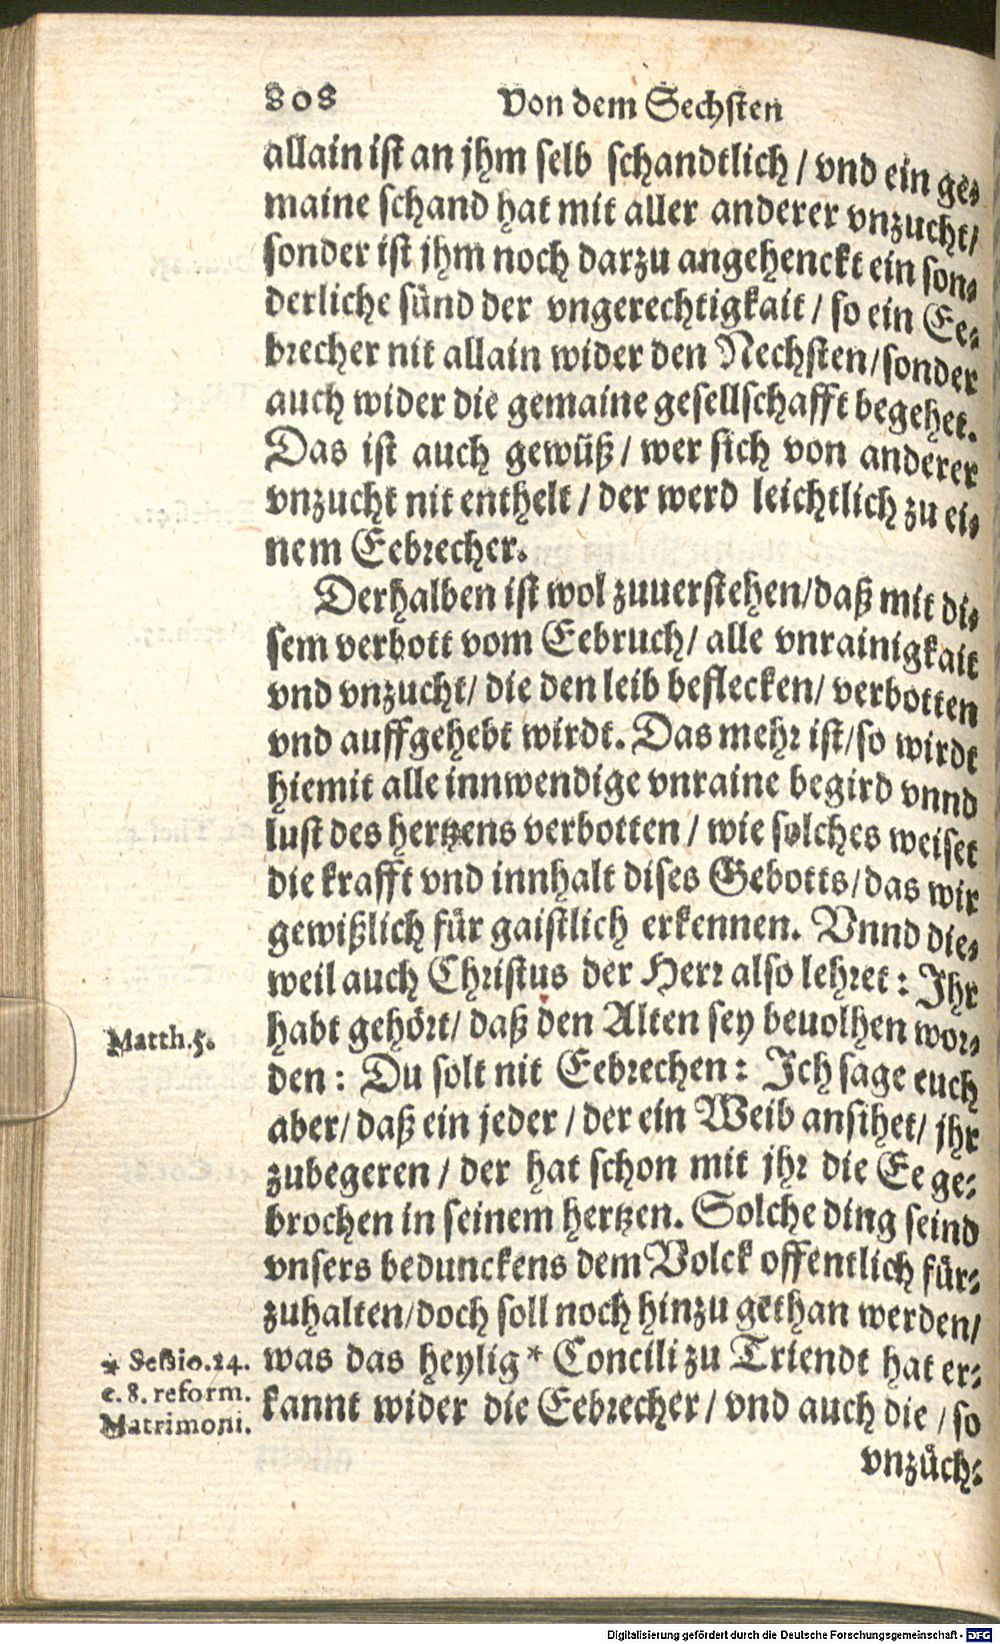 808 Von dem Sechsten
allain ist an jhm selb schandtlich / vnd ein ge⸗
maine schand hat mit aller anderer vnzucht/
sonder ist jhm noch darzu angehenckt ein son⸗
derliche sünd der vngerechtigkait / so ein Ee⸗
brecher nit allain wider den Nechsten/sonder
auch wider die gemaine gesellschafft begehet.
Das ist auch gewüß / wer sich von anderer
vnzucht nit enthelt / der werd leichtlich zu ei⸗
nem Eebrecher.
Derhalben ist wol zuuerstehen/daß mit di⸗
sem verbott vom Eebruch/ alle vnrainigkait
vnd vnzucht/ die den leib beflecken/ verbotten
vnd auffgehebt wirdt. Das mehr ist/so wirdt
hiemit alle innwendige vnraine begird vnnd
lust des hertzens verbotten / wie solches weiset
die krafft vnd innhalt dises Gebotts/das wir
gewißlich für gaistlich erkennen. Vnnd die⸗
weil auch Christus der Herr also lehret: Jhr
Matth.5. habt gehört/ daß den Alten sey beuolhen wor⸗
den: Du solt nit Eebrechen: Jch sage euch
aber/ daß ein jeder / der ein Weib ansihet/ jhr
zubegeren / der hat schon mit jhr die Ee ge⸗
brochen in seinem hertzen. Solche ding seind
vnsers bedunckens dem Volck offentlich für⸗
zuhalten/doch soll noch hinzu gethan werden/
* Seßio.24. was das heylig * Concili zu Triendt hat er⸗
c. 8. reform. kannt wider die Eebrecher / vnd auch die / so
Matrimoni.
vnzüch⸗
Digitalisierung gefördert durch die Deutsche Forschungsgemeinschaft - DFG